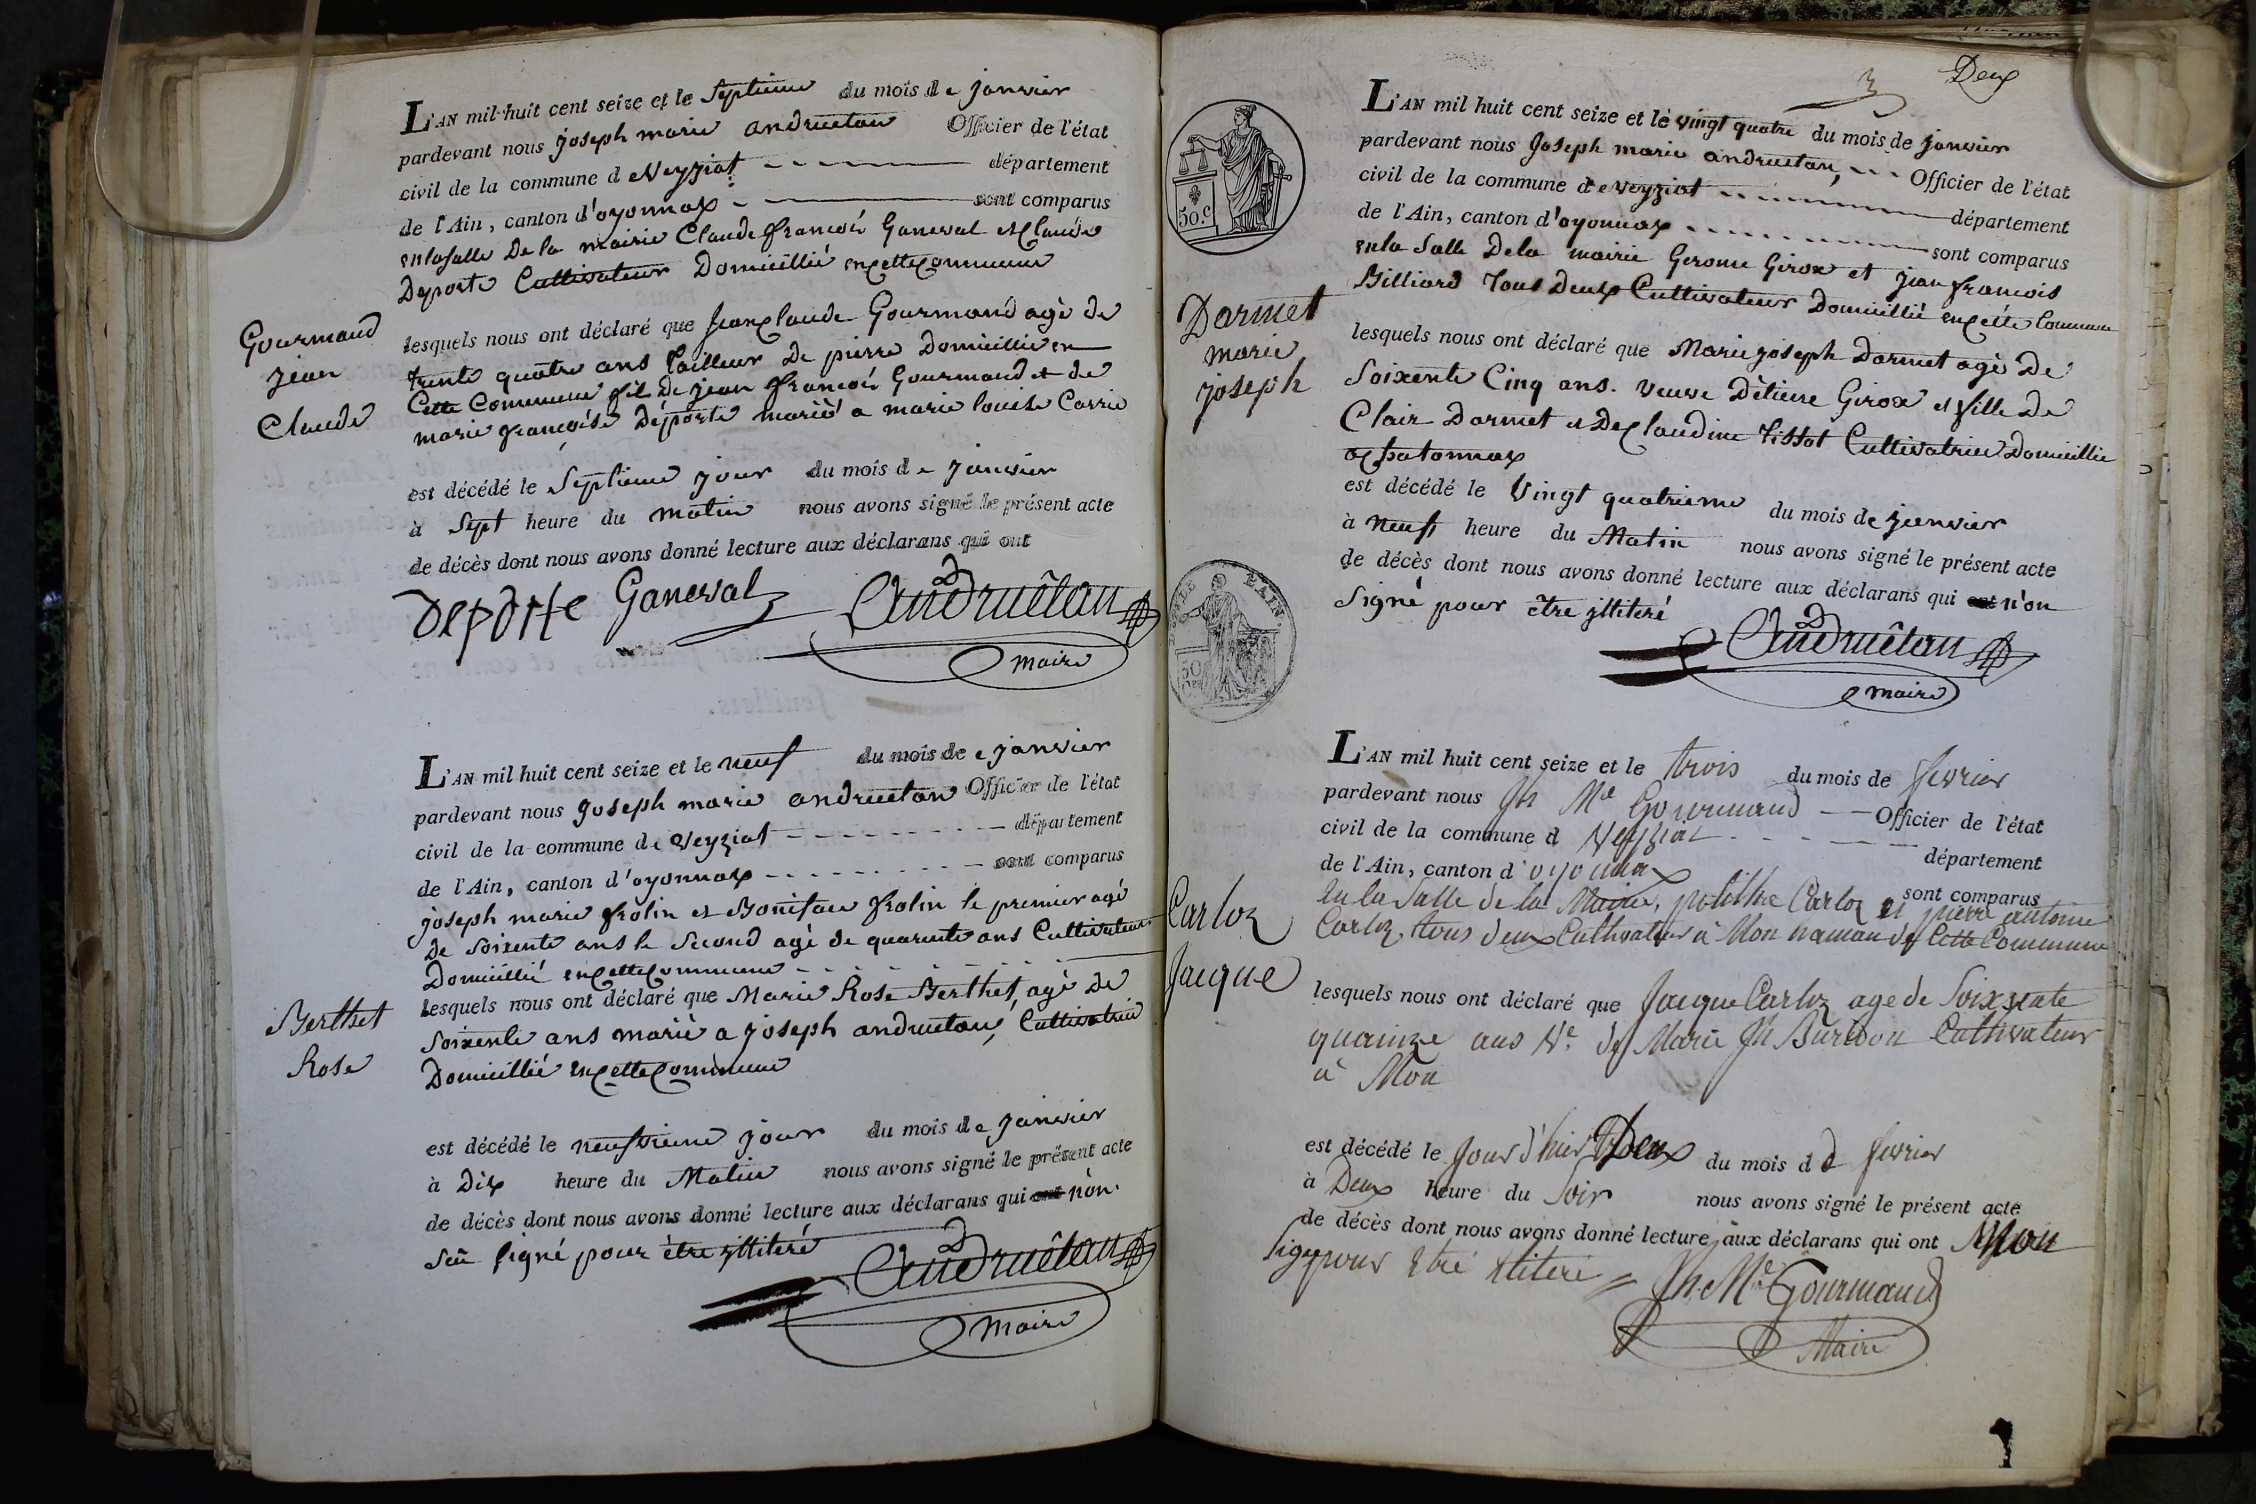 L'AN mil huit cent seize et le Septieme du mois de janvier
pardevant nous joseph marie andruetan Officier de l'état
civil de la commune de Veyziat département
de l'Ain, canton d'oyonnax sont comparus
en la salle De la mairie Claude francois Ganeval et Claude
Deporte Cultivateur Domicillié en cette Commune
Gourmand
jean
Claude
lesquels nous ont déclaré que jean claude Gourmand agé de
trente quatre ans tailleur De pierre Domicillié en
Cette Commune fil De jean francois Gourmand et de
marie francoise Déporte marié a marie louise Carrie
est décédé le Septieme jour du mois de janvier
à Sept heure du matin nous avons signé le présent acte
de décès dont nous avons donné lecture aux déclarans qui ont
Deporte Ganeval Andruêtan
maire
L'AN mil huit cent seize et le neuf du mois de janvier
pardevant nous joseph marie andruetan Officier de l'état
civil de la commune de Veyziat département
de l'Ain, canton d'oyonnax sont comparus
joseph marie frolin et Boniface frolin le premier agé
De soixente ans le Second agé de quarente ans Cultivateur
Domicillié en cette Commune
Berthet
Rose
lesquels nous ont déclaré que Marie Rose Berthet, agé De
Soixente ans marié a joseph andruetan, Cultivatrice
Domicillié en cette Commune
est décédé le neufvieme jour du mois de janvier
à Dix heure du Matin nous avons signé le présent acte
de décès dont nous avons donné lecture aux déclarans qui ont n'on
Seu signé pour être illiteré Andruêtan
maire
3 Deux
50.c
L'AN mil huit cent seize et le vingt quatre du mois de janvier
pardevant nous joseph marie andruetan, Officier de l'état
civil de la commune de Veyziat département
de l'Ain, canton d'oyonnax sont comparus
en la Salle De la mairie Gerome Girox et jean francois
Billiard tous Deux Cultivateur Domicillié en cette Commune
Darmet
marie
joseph
lesquels nous ont déclaré que Marie joseph Darmet agé De
Soixente Cinq ans. veuve D'étiene Girox et fille De
Clair Darmet et De Claudine Tissot Cultivatrice Domicillié
a Chatonnax
est décédé le Vingt quatrieme du mois de janvier
à neuf heure du Matin nous avons signé le présent acte
de décès dont nous avons donné lecture aux déclarans qui ont n'on
Signé pour être illiteré
Andruêtan
maire
L'AN mil huit cent seize et le trois du mois de fevrier
pardevant nous Jh Mie Gourmand Officier de l'état
civil de la commune d Veyziat département
de l'Ain, canton d'oyonnax sont comparus
En la Salle de la Mairie, Carloz et pierre antoine
Carloz, tous deux Cultivateur à Mon hamau de Cette Commune
Carloz
Jacque
lesquels nous ont déclaré que Jacque Carloz age de Soixxente
quainze ans Ve. de Marie Jh Burdon Cultivateur
à Mon
est décédé le Jour d'hier Deux du mois d d fevrier
à Deux heure du Soir nous avons signé le présent acte
de décès dont nous avons donné lecture aux déclarans qui ont Non
Signé pour Etre illitéré Jh. Mie Gourmand
Maire